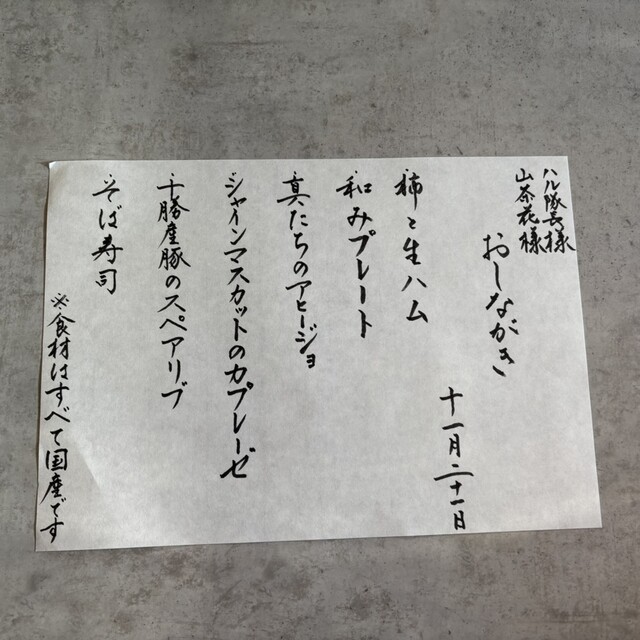 ハル隊長様
山茶花様
おしながき
十一月二十一日
柿と生ハム
和みプレート
真たちのアヒージョ
シャインマスカットのカプレーゼ
十勝産豚のスペアリブ
そば寿司
※食材はすべて国産です